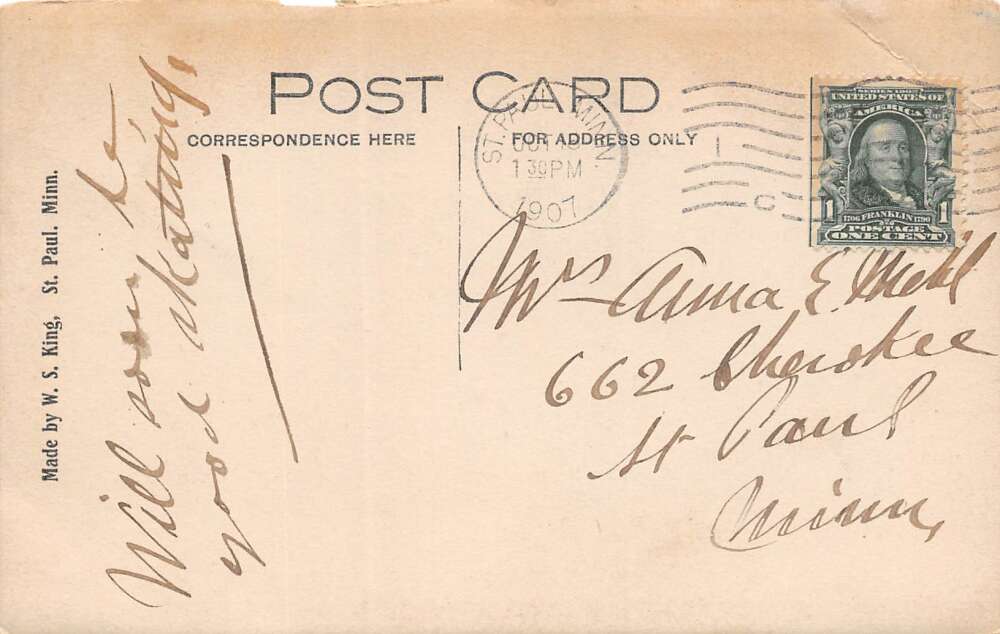 POST CARD
CORRESPONDENCE HERE
FOR ADDRESS ONLY
ST. PAUL MINN.
OCT
1 30 PM
1907
SERIES 1902
UNITED STATES OF
AMERICA
1706 FRANKLIN 1790
1 1
POSTAGE
ONE CENT
Made by W. S. King, St. Paul. Minn.
Will soon be
good skating,
Mrs Anna E.
662 Cherokee
St Paul
Minn,